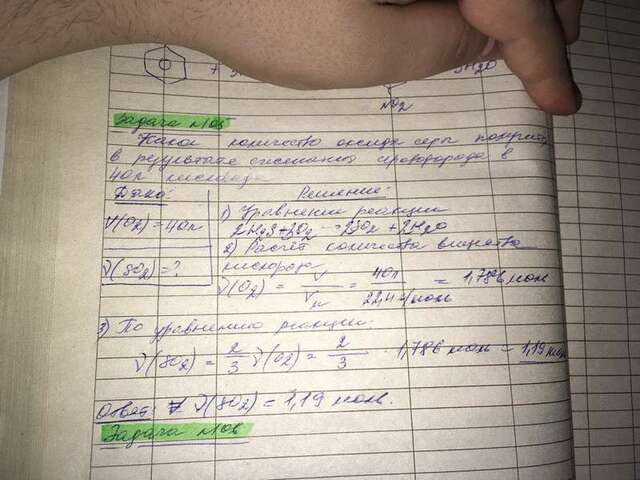 + 3H2O
NO2
Задача №105
Какое количество оксида серы получится
в результате сжигания сероводорода в
40л кислорода
Дано: Решение:
V(O2) = 40л
ν(SO2) = ?
1) Уравнение реакции
2H2S+3O2 = 2SO2 + 2H2O
2) Расчёт количества вещества
кислорода
ν(O2) = V/Vμ = 40л/22,4л/моль = 1,786 моль
3) По уравнению реакции:
ν(SO2) = 2/3 ν(O2) = 2/3 · 1,786 моль = 1,19 моль
Ответ: ν(SO2) = 1,19 моль.
Задача №106